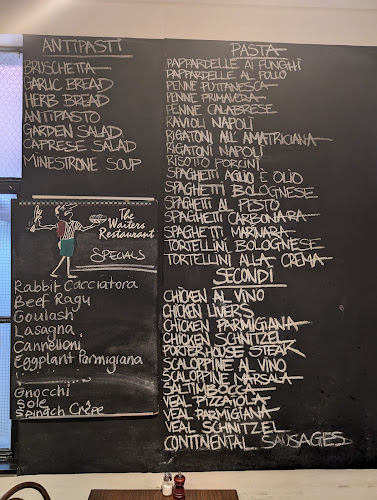 ANTIPASTI
BRUSCHETTA
GARLIC BREAD
HERB BREAD
ANTIPASTO
GARDEN SALAD
CAPRESE SALAD
MINESTRONE SOUP
The
Waiters
Restaurant
SPECIALS
Rabbit Cacciatora
Beef Ragu
Goulash
Lasagna
Cannelloni
Eggplant Parmigiana
Gnocchi
Sole
Spinach Crêpe
PASTA
PAPPARDELLE AI FUNGHI
PAPPARDELLE AL POLLO
PENNE PUTTANESCA
PENNE PRIMAVERA
PENNE CALABRESE
RAVIOLI NAPOLI
RIGATONI ALL'AMATRICIANA
RIGATONI NAPOLI
RISOTTO PORCINI
SPAGHETTI AGLIO E OLIO
SPAGHETTI BOLOGNESE
SPAGHETTI AL PESTO
SPAGHETTI CARBONARA
SPAGHETTI MARINARA
TORTELLINI BOLOGNESE
TORTELLINI ALLA CREMA
SECONDI
CHICKEN AL VINO
CHICKEN LIVERS
CHICKEN PARMIGIANA
CHICKEN SCHNITZEL
PORTERHOUSE STEAK
SCALOPPINE AL VINO
SCALOPPINE MARSALA
SALTIMBOCCA
VEAL PIZZAIOLA
VEAL PARMIGIANA
VEAL SCHNITZEL
CONTINENTAL SAUSAGES